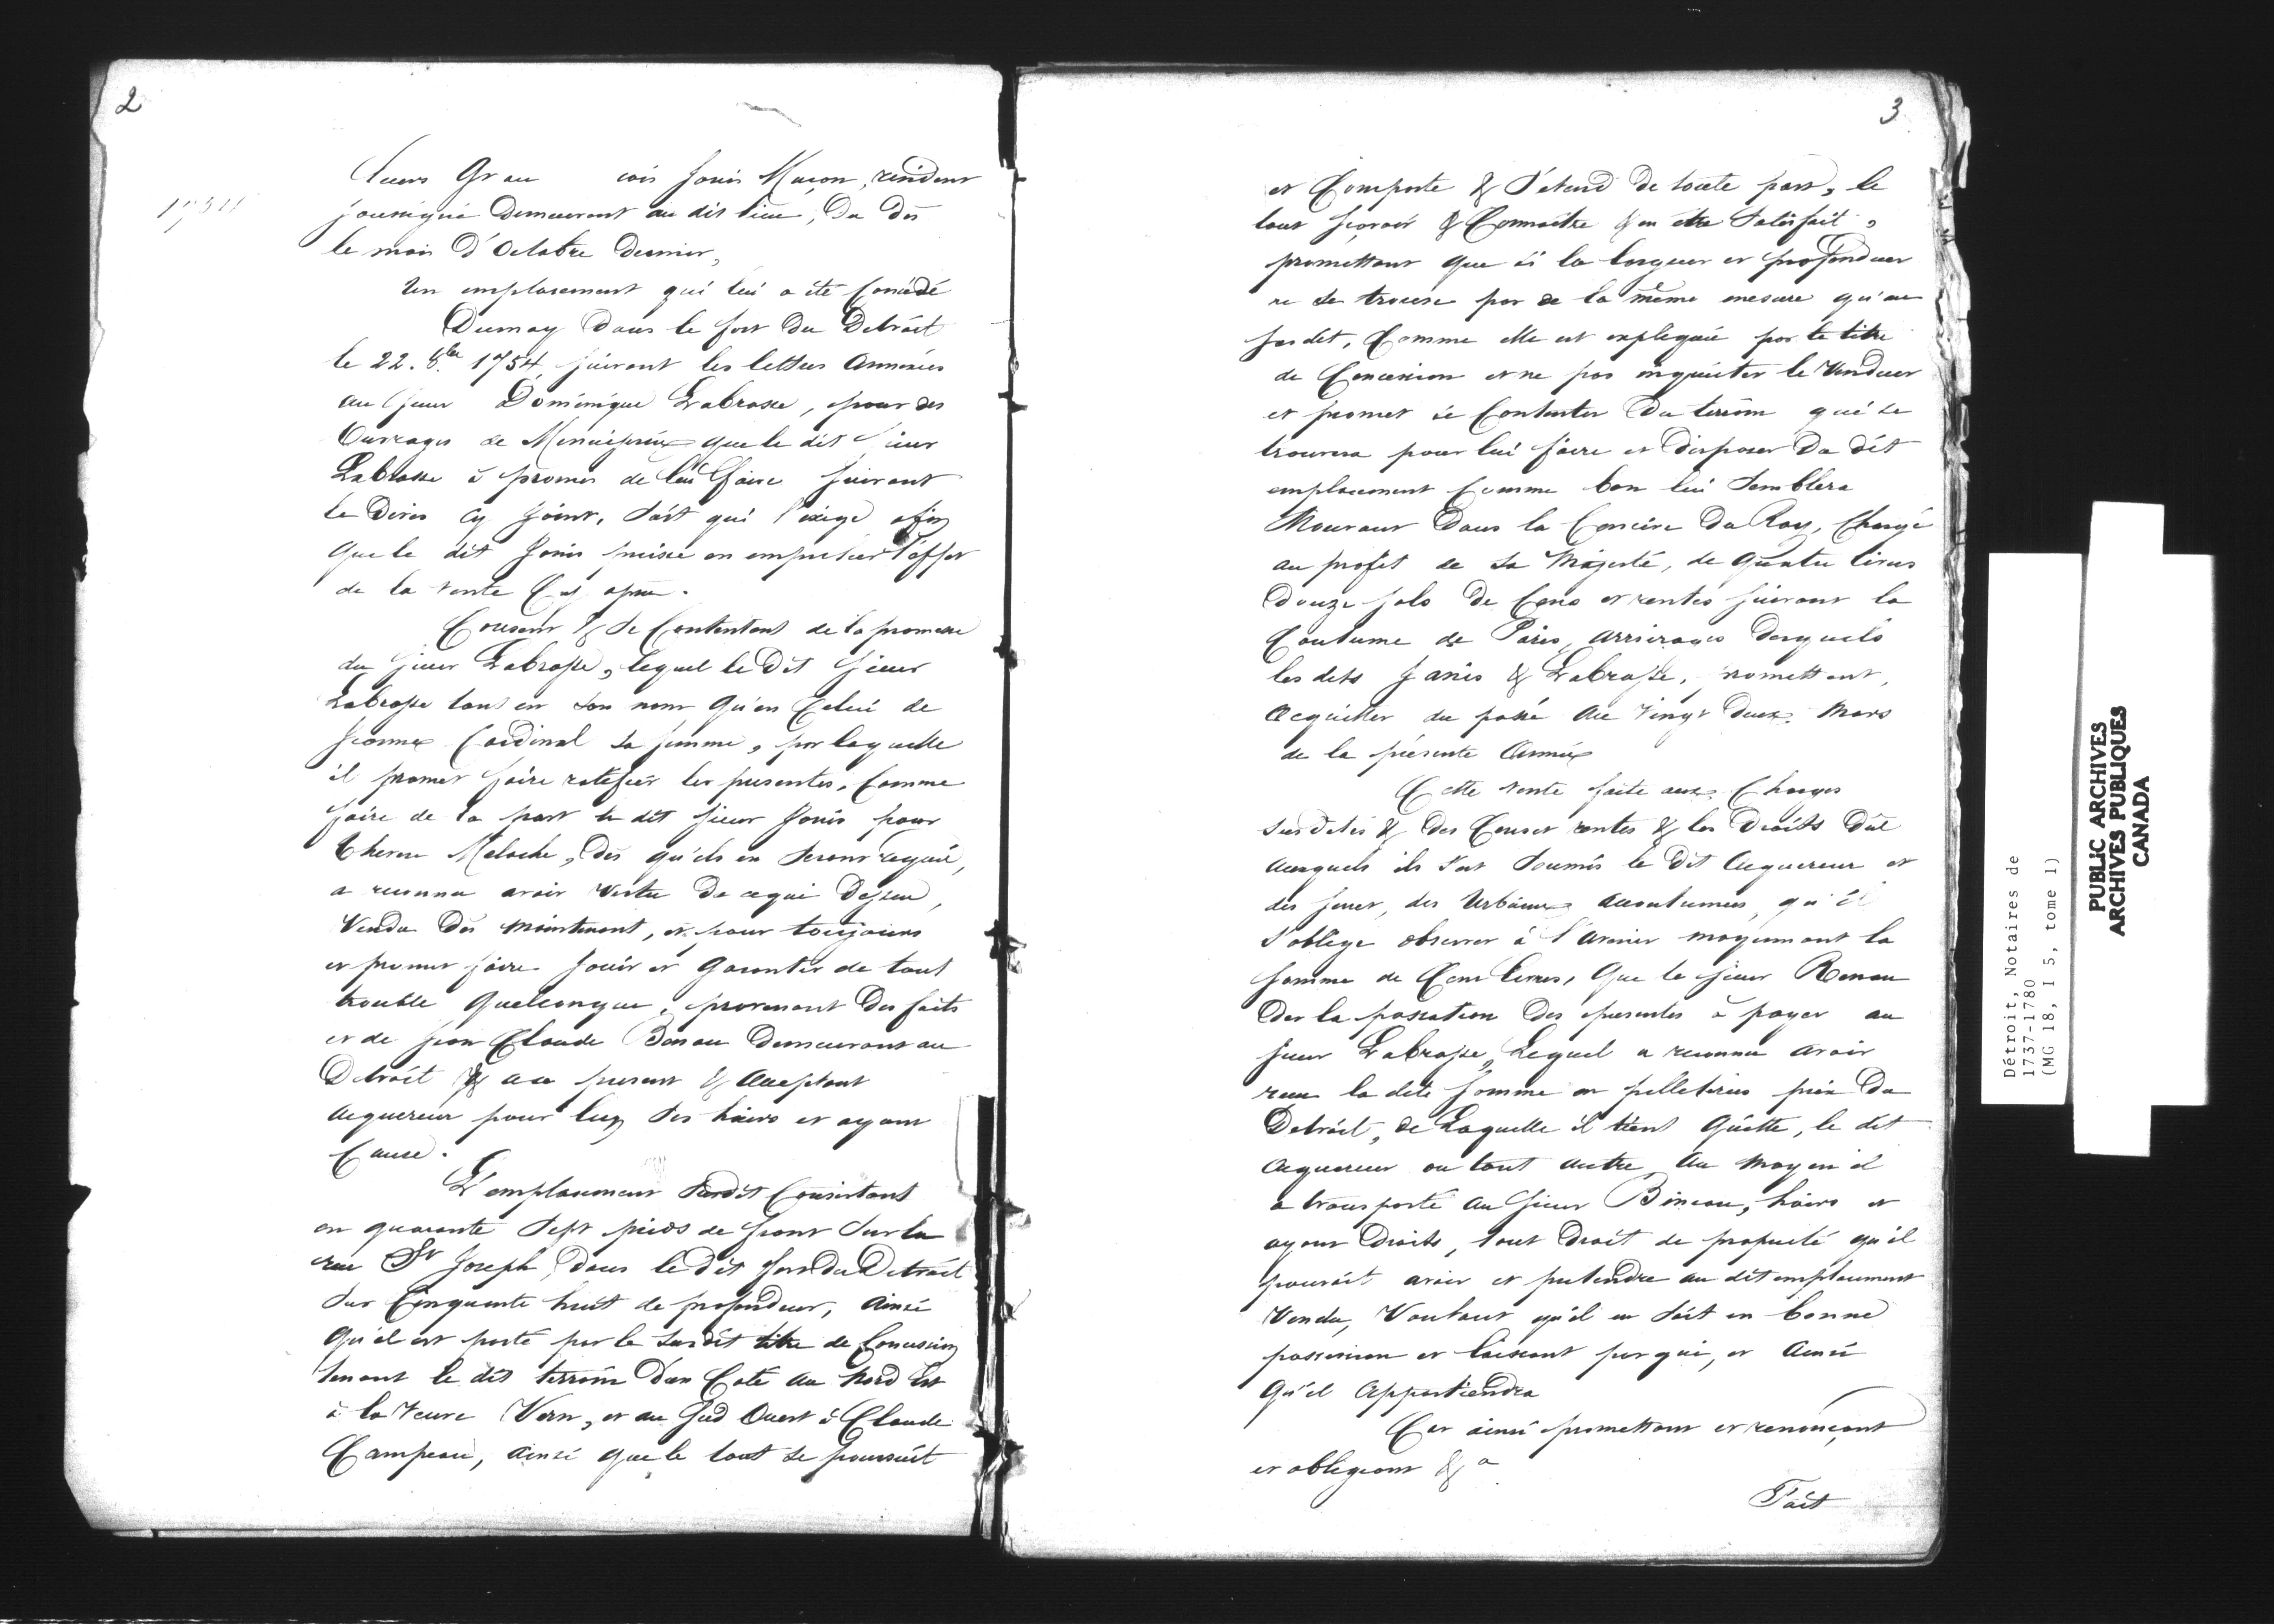 2
1754
Sieurs Grau cois Janis Maçon, residant
soussigné Demeurant au dit lieu, Du dès
le mois d'Octobre Dernier,
Un emplacement qui lui a été Concédé
Dumay Dans le fort Du Detroit
le 22. 8bre 1754, suivant les lettres Annexées
au Sieur Dominique Labrosse, pour des
Ouvrages de Menuiserie que le dit Sieur
Labrosse à promis de lui faire suivant
le Devis Cy Joint, soit qui l'exige afin
que le dit Janis puisse en empecher l'effet
de la vente Cy apres.
Consent & se Contentent de la promesse
du Sieur Labrosse, lequel le Dit Sieur
Labrosse tant en son nom Qu'en Celui de
Jeanne Cardinal sa femme, par laquelle
il promet faire ratifier les presentes, Comme
faire de la part le dit Sieur Janis pour
Therese Meloche, Dès qu'ils en seront requis,
a reconnu avoir Vertu De ce qui Dessus,
Vendu Dès Maintenant, et pour toujours
et promet faire Jouir et Garantir de tout
trouble Quelconque, provenant Des faits
et de Jean Claude Benau Demeurant au
Detroit & a ce present & Acceptant
Acquereur pour luy ses hoirs et ayant
Cause.
L'emplacement susdit Consistant
en quarante Sept pieds de front Sur la
rue St Joseph, Dans le Dit fort Du Detroit
Sur Cinquante huit de profondeur, Ainsi
Qu'il est porté par le susdit titre de Concession
tenant le dit terrain D'un Coté au Nord Est
à la Veuve Vern, et au Sud Ouest à Claude
Campeau, Ainsi que le tout se poursuit
3
et Comporte & S'étend De toute part, le
tout sçavoir & Connaitre & en être Satisfait,
promettant que si la longueur et profondeur
ne se trouve par de la même mesure qu'au
susdit, Comme elle est expliquée par le titre
de Concession et ne pas inquiéter le Vendeur
et promet se Contenter Du terrain qui se
trouvera pour lui faire et Disposer Du dit
emplacement Comme bon lui Semblera
Mouvant Dans la Censive Du Roy, Chargé
au profit de Sa Majesté, de Quatre livres
Douze sols De Cens et rentes suivant la
Coutume de Paris, arrérages Desquels
les dits Janis & Labrosse, promettent,
Acquitter du passé Au Vingt Deux Mars
de la présente Année
Cette vente faite aux Charges
susdites & Des Cens et rentes & les Droits Dûs
auxquels ils s'est Soumis le Dit Acquereur et
des Jurer, des Urbaines Accoutumées, qu'il
s'oblige observer à l'avenir moyennant la
somme de Cent livres, Que le Sieur Benau
Der la passation Des presentes à payer au
Sieur Labrosse, Lequel a reconnu avoir
reçu la dite Somme en pelleteries prix Du
Detroit, de Laquelle il tient Quitte, le dit
Acquereur ou tout autre Au Moyen il
a transporté Au Sieur Bineau, hoirs et
ayant Droits, tout Droit de propriété qu'il
pouroit avoir et pretendre au dit emplacement
Vendu, Voulant qu'il en soit en bonne
possession et laissant par qui, et Ainsi
Qu'il Appartiendra
Car ainsi promettant et renonçant
et obligeant &a
Fait
Détroit, Notaires de
1737-1780
(MG 18, I 5, tome 1)
PUBLIC ARCHIVES
ARCHIVES PUBLIQUES
CANADA